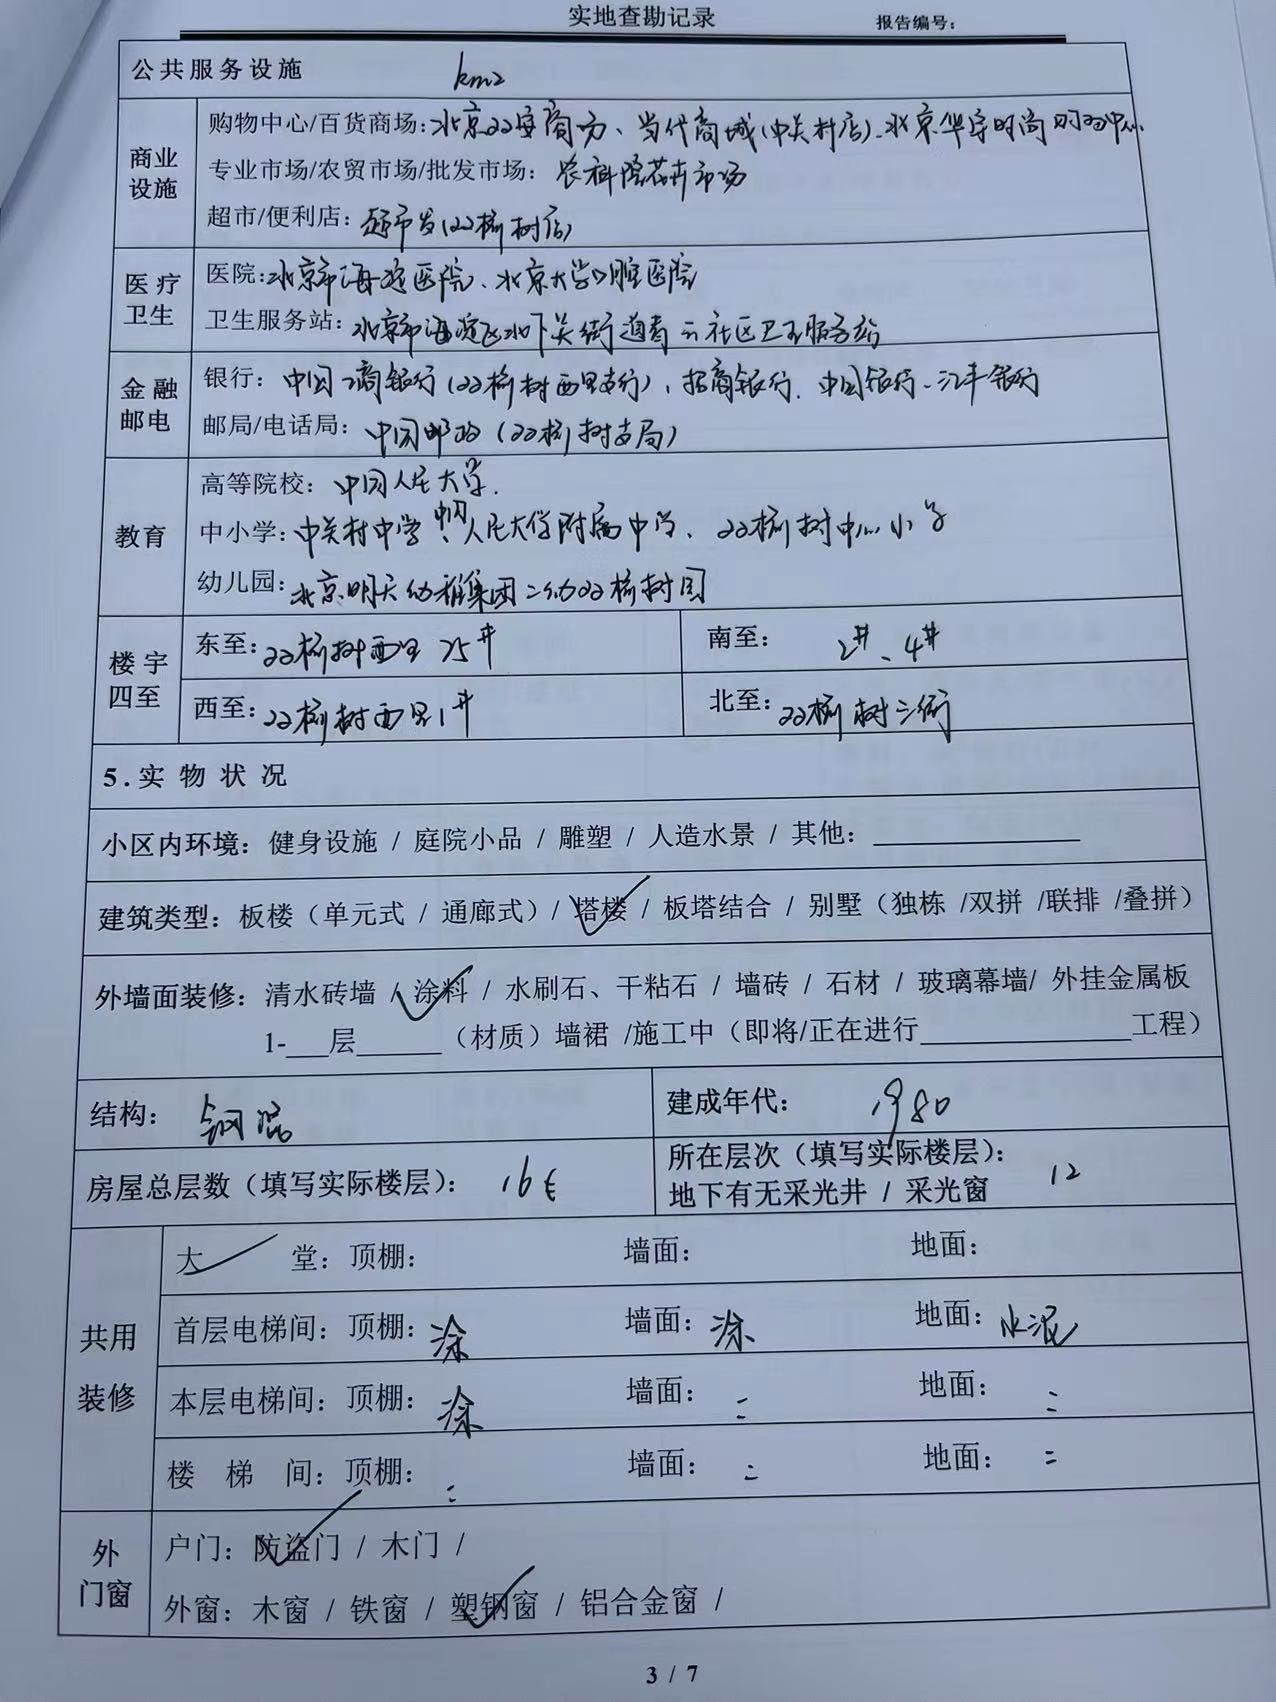 实地查勘记录
报告编号：
公共服务设施 km2
商业设施
购物中心/百货商场：北京双安商场、当代商城(中关村店)、北京华宇时尚购物中心
专业市场/农贸市场/批发市场：农科院花卉市场
超市/便利店：超市发(双榆树店)
医疗卫生
医院：北京市海淀医院、北京大学口腔医院
卫生服务站：北京市海淀区北下关街道青云社区卫生服务站
金融邮电
银行：中国工商银行(双榆树西里支行)、招商银行、中国银行、江苏银行
邮局/电话局：中国邮政(双榆树支局)
教育
高等院校：中国人民大学.
中小学：中关村中学、中国人民大学附属中学、双榆树中心小学
幼儿园：北京明天幼稚集团二幼双榆树园
楼宇四至
东至：双榆树西里25# 南至：2#、4#
西至：双榆树西里1# 北至：双榆树三街
5.实物状况
小区内环境：健身设施 / 庭院小品 / 雕塑 / 人造水景 / 其他：
建筑类型：板楼（单元式 / 通廊式）/ 塔楼 / 板塔结合 / 别墅（独栋 /双拼 /联排 /叠拼）
外墙面装修：清水砖墙 / 涂料 / 水刷石、干粘石 / 墙砖 / 石材 / 玻璃幕墙/ 外挂金属板
1-___层______（材质）墙裙 /施工中（即将/正在进行_______________工程）
结构： 钢混 建成年代： 1980
房屋总层数（填写实际楼层）： 16 所在层次（填写实际楼层）： 12
地下有无采光井 / 采光窗
共用装修
大 堂：顶棚： 墙面： 地面：
首层电梯间：顶棚：涂 墙面：涂 地面：水泥
本层电梯间：顶棚：涂 墙面：〃 地面：〃
楼 梯 间：顶棚：〃 墙面：〃 地面：〃
外门窗
户门：防盗门 / 木门 /
外窗：木窗 / 铁窗 / 塑钢窗 / 铝合金窗 /
3 / 7